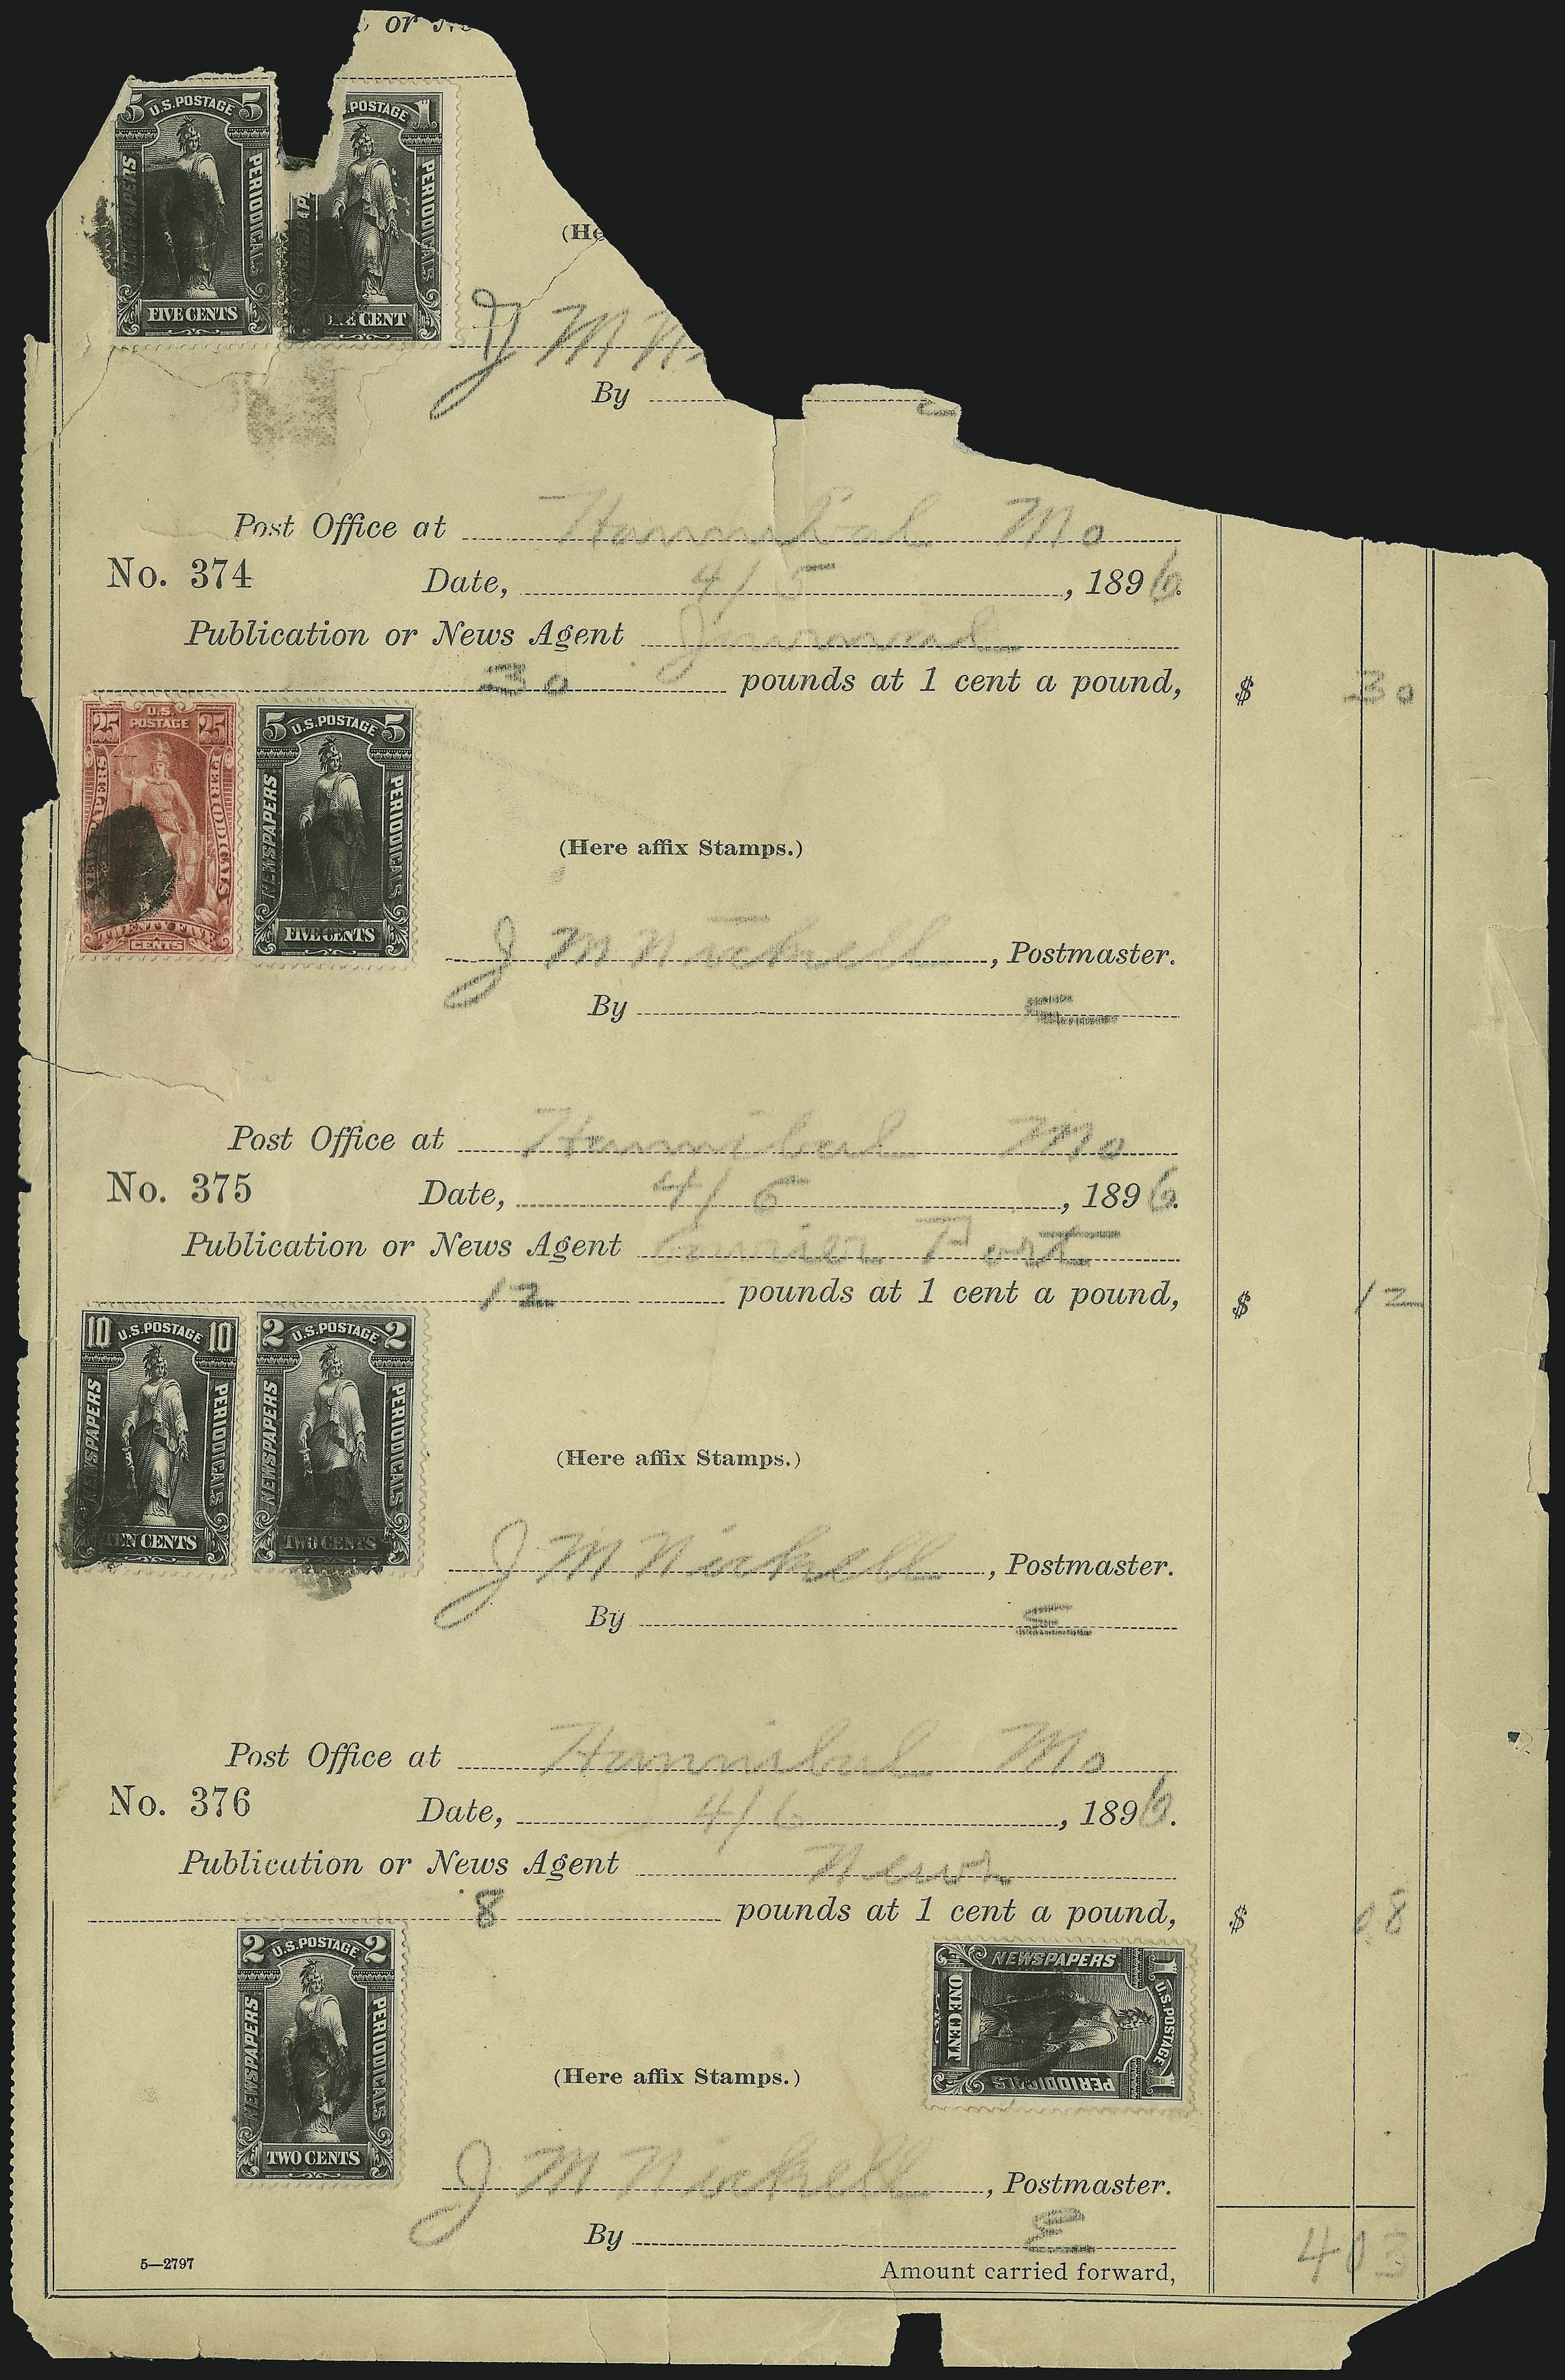 or
5 U.S.POSTAGE 5
NEWSPAPERS
PERIODICALS
FIVE CENTS
POSTAGE 1
NEWSPAP
PERIODICALS
ONE CENT
(He
J M N
By
Post Office at Hannibal Mo
No. 374 Date, 4/5, 1896.
Publication or News Agent Journal
30 pounds at 1 cent a pound, $ 30
25 U.S. POSTAGE 25
NEWSPAPERS
PERIODICALS
TWENTY FIVE
CENTS
5 U.S.POSTAGE 5
NEWSPAPERS
PERIODICALS
FIVE CENTS
(Here affix Stamps.)
J M Nickell, Postmaster.
By E
Post Office at Hannibal Mo
No. 375 Date, 4/6, 1896.
Publication or News Agent Courier Post
12 pounds at 1 cent a pound, $ 12
10 U.S.POSTAGE 10
NEWSPAPERS
PERIODICALS
TEN CENTS
2 U.S.POSTAGE 2
NEWSPAPERS
PERIODICALS
TWO CENTS
(Here affix Stamps.)
J M Nickell, Postmaster.
By E
Post Office at Hannibal Mo
No. 376 Date, 4/6, 1896.
Publication or News Agent News
8 pounds at 1 cent a pound, $ 08
2 U.S.POSTAGE 2
NEWSPAPERS
PERIODICALS
TWO CENTS
1 U.S.POSTAGE 1
NEWSPAPERS
PERIODICALS
ONE CENT
(Here affix Stamps.)
J M Nickell, Postmaster.
By E
5—2797
Amount carried forward, 403